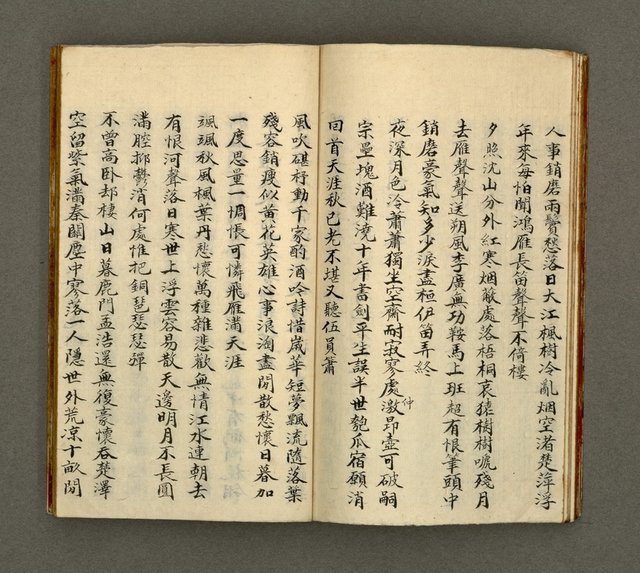 人事銷磨兩鬢愁落日大江楓樹冷亂烟空渚楚萍浮
年來每怕聞鴻雁長笛聲聲不倚樓
夕照沈山分外紅寒烟敝處落梧桐哀猿樹樹啼殘月
去雁聲聲送朔風李廣無功鞍馬上班超有恨筆頭中
銷磨豪氣知多少淚盡桓伊笛弄終
夜深月色冷蕭蕭獨坐空齋耐寂寥處仲激昂壺可破嗣
宗壘塊酒難澆十年書劍平生誤半世匏瓜宿願消
回首天涯秋已老不堪又聽伍員簫
風吹碪杵動千家酌酒吟詩惜歲華短夢飄流隨落葉
殘容銷瘦似黃花英雄心事浪淘盡閒散愁懷日暮加
一度思量一惆悵可憐飛雁滿天涯
颯颯秋風楓葉丹悲懷萬種雜悲歡無情江水連朝去
有恨河聲落日寒世上浮雲容易散天邊明月不長圓
滿腔抑鬱消何處惟把銅琶瑟瑟彈
不曾高臥却棲山日暮鹿門孟浩還無復豪懷吞楚澤
空留紫氣滿秦關塵中寥落一人隱世外荒凉十畝閒